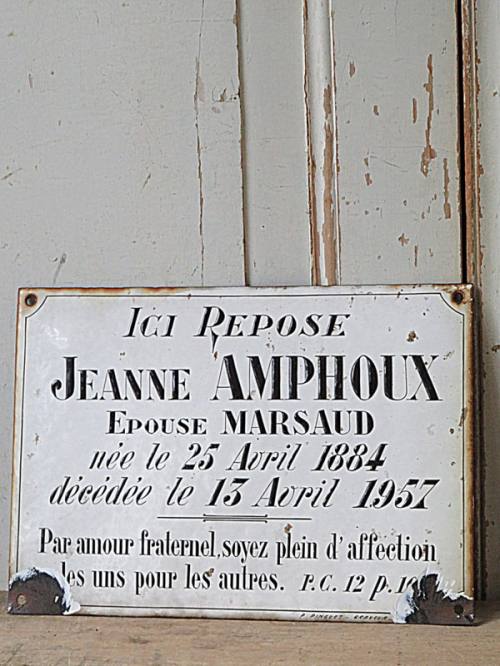 ICI REPOSE
JEANNE AMPHOUX
EPOUSE MARSAUD
née le 25 Avril 1884
décédée le 13 Avril 1957
Par amour fraternel, soyez plein d'affection
les uns pour les autres. P.C. 12 p.